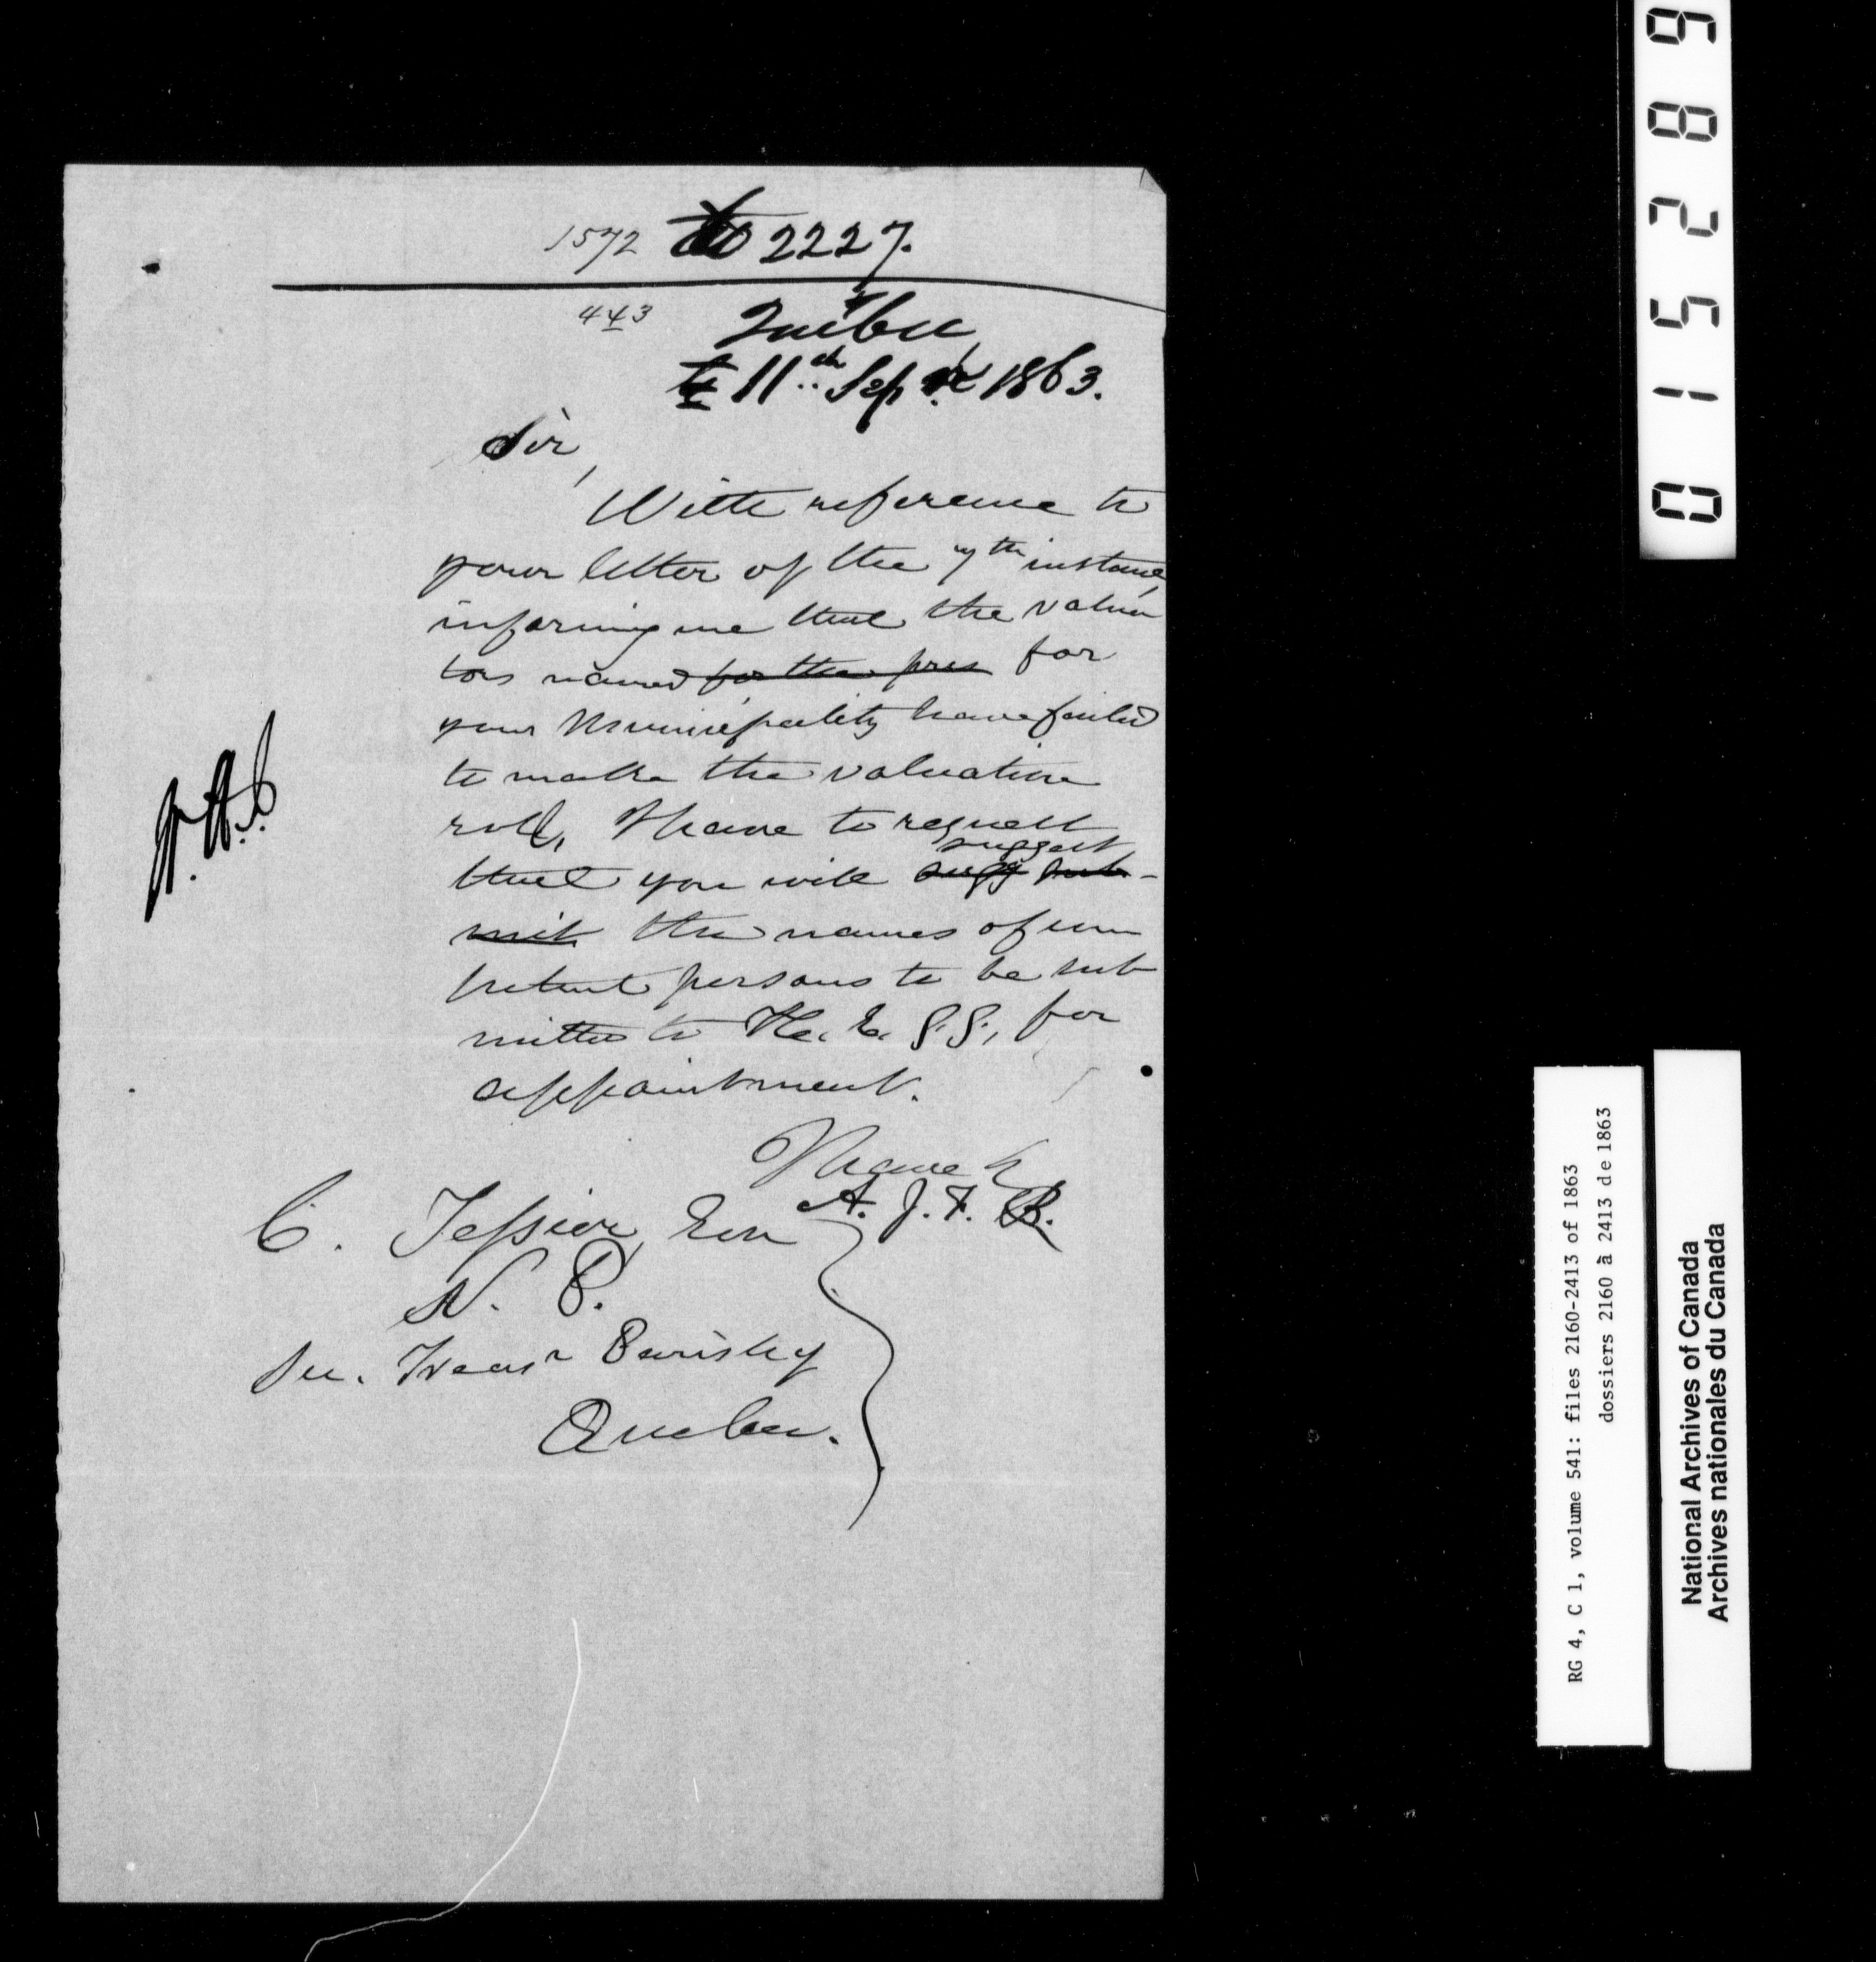 1572 2227.
443 Quebec
11th Sept 1863.
Sir,
With reference to
your letter of the 7th instant,
informing me that the valua
tors named for the pres for
your Municipality have failed
to make the valuation
roll, I have to request
suggest
that you will sugg sub-
mit the names of com
petent persons to be sub
mitted to H. E. G. G., for
appointment.
I have &
A. J. F. B.
C. Tessier, Esq
N. P.
Sec. Treasr Parish of
Quebec.
015289
RG 4, C 1, volume 541: files 2160-2413 of 1863
dossiers 2160 à 2413 de 1863
National Archives of Canada
Archives nationales du Canada